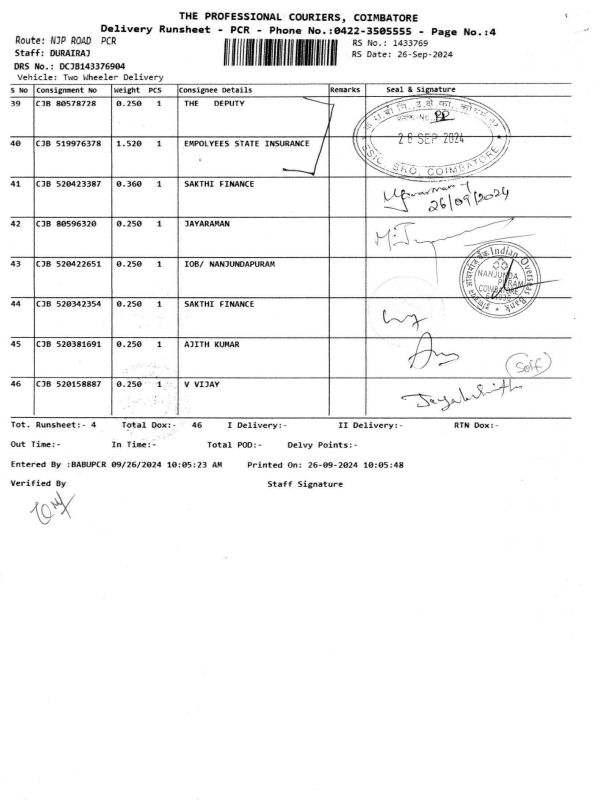 THE PROFESSIONAL COURIERS, COIMBATORE
Delivery Runsheet - PCR - Phone No.:0422-3505555 - Page No.:4
Route: NJP ROAD PCR
RS No.: 1433769
Staff: DURAIRAJ
RS Date: 26-Sep-2024
DRS No.: DCJB143376904
Vehicle: Two Wheeler Delivery
S No Consignment No Weight PCS Consignee Details Remarks Seal & Signature
39 CJB 80578728 0.250 1 THE DEPUTY
26 SEP 2024
ESIC, SRO, COIMBATORE
40 CJB 519976378 1.520 1 EMPOLYEES STATE INSURANCE
41 CJB 520423387 0.360 1 SAKTHI FINANCE
26/09/2024
42 CJB 80596320 0.250 1 JAYARAMAN
43 CJB 520422651 0.250 1 IOB/ NANJUNDAPURAM
Indian Overseas Bank
44 CJB 520342354 0.250 1 SAKTHI FINANCE
45 CJB 520381691 0.250 1 AJITH KUMAR
46 CJB 520158887 0.250 1 V VIJAY
Tot. Runsheet:- 4 Total Dox:- 46 I Delivery:- II Delivery:- RTN Dox:-
Out Time:- In Time:- Total POD:- Delvy Points:-
Entered By :BABUPCR 09/26/2024 10:05:23 AM Printed On: 26-09-2024 10:05:48
Verified By Staff Signature